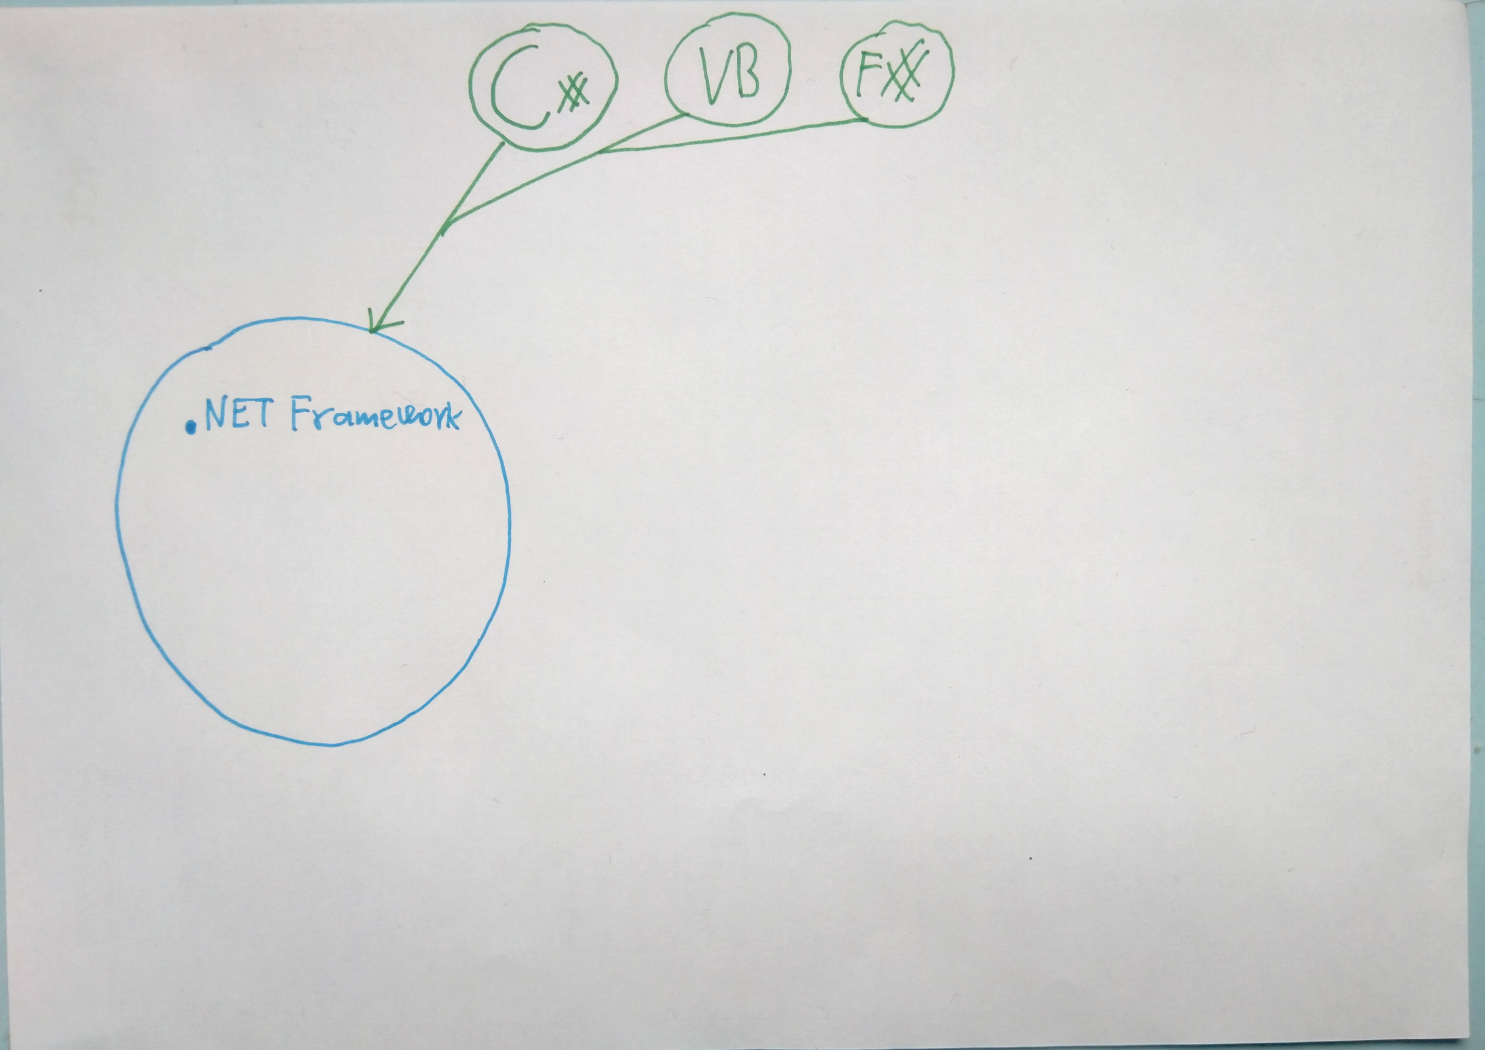 C#
VB
F#
.NET Framework